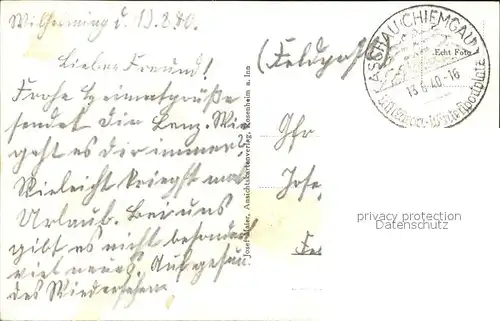 d. 13.8.40.
Lieber Freund!
Frohe Heimatgrüße
sendet dir Lenz. Wie
geht es dir immer?
Vieleicht kriegst mal
Urlaub. Bei uns
gibt es nicht besonders
viel neues. Auf gesun
des Wiedersehen.
(Feldpost)
Gfr
Josef
ASCHAU (CHIEMGAU)
13.8.40-16
Echt Foto
Josef Meier, Ansichtskartenverlag, Rosenheim a. Inn
privacy protection
Datenschutz